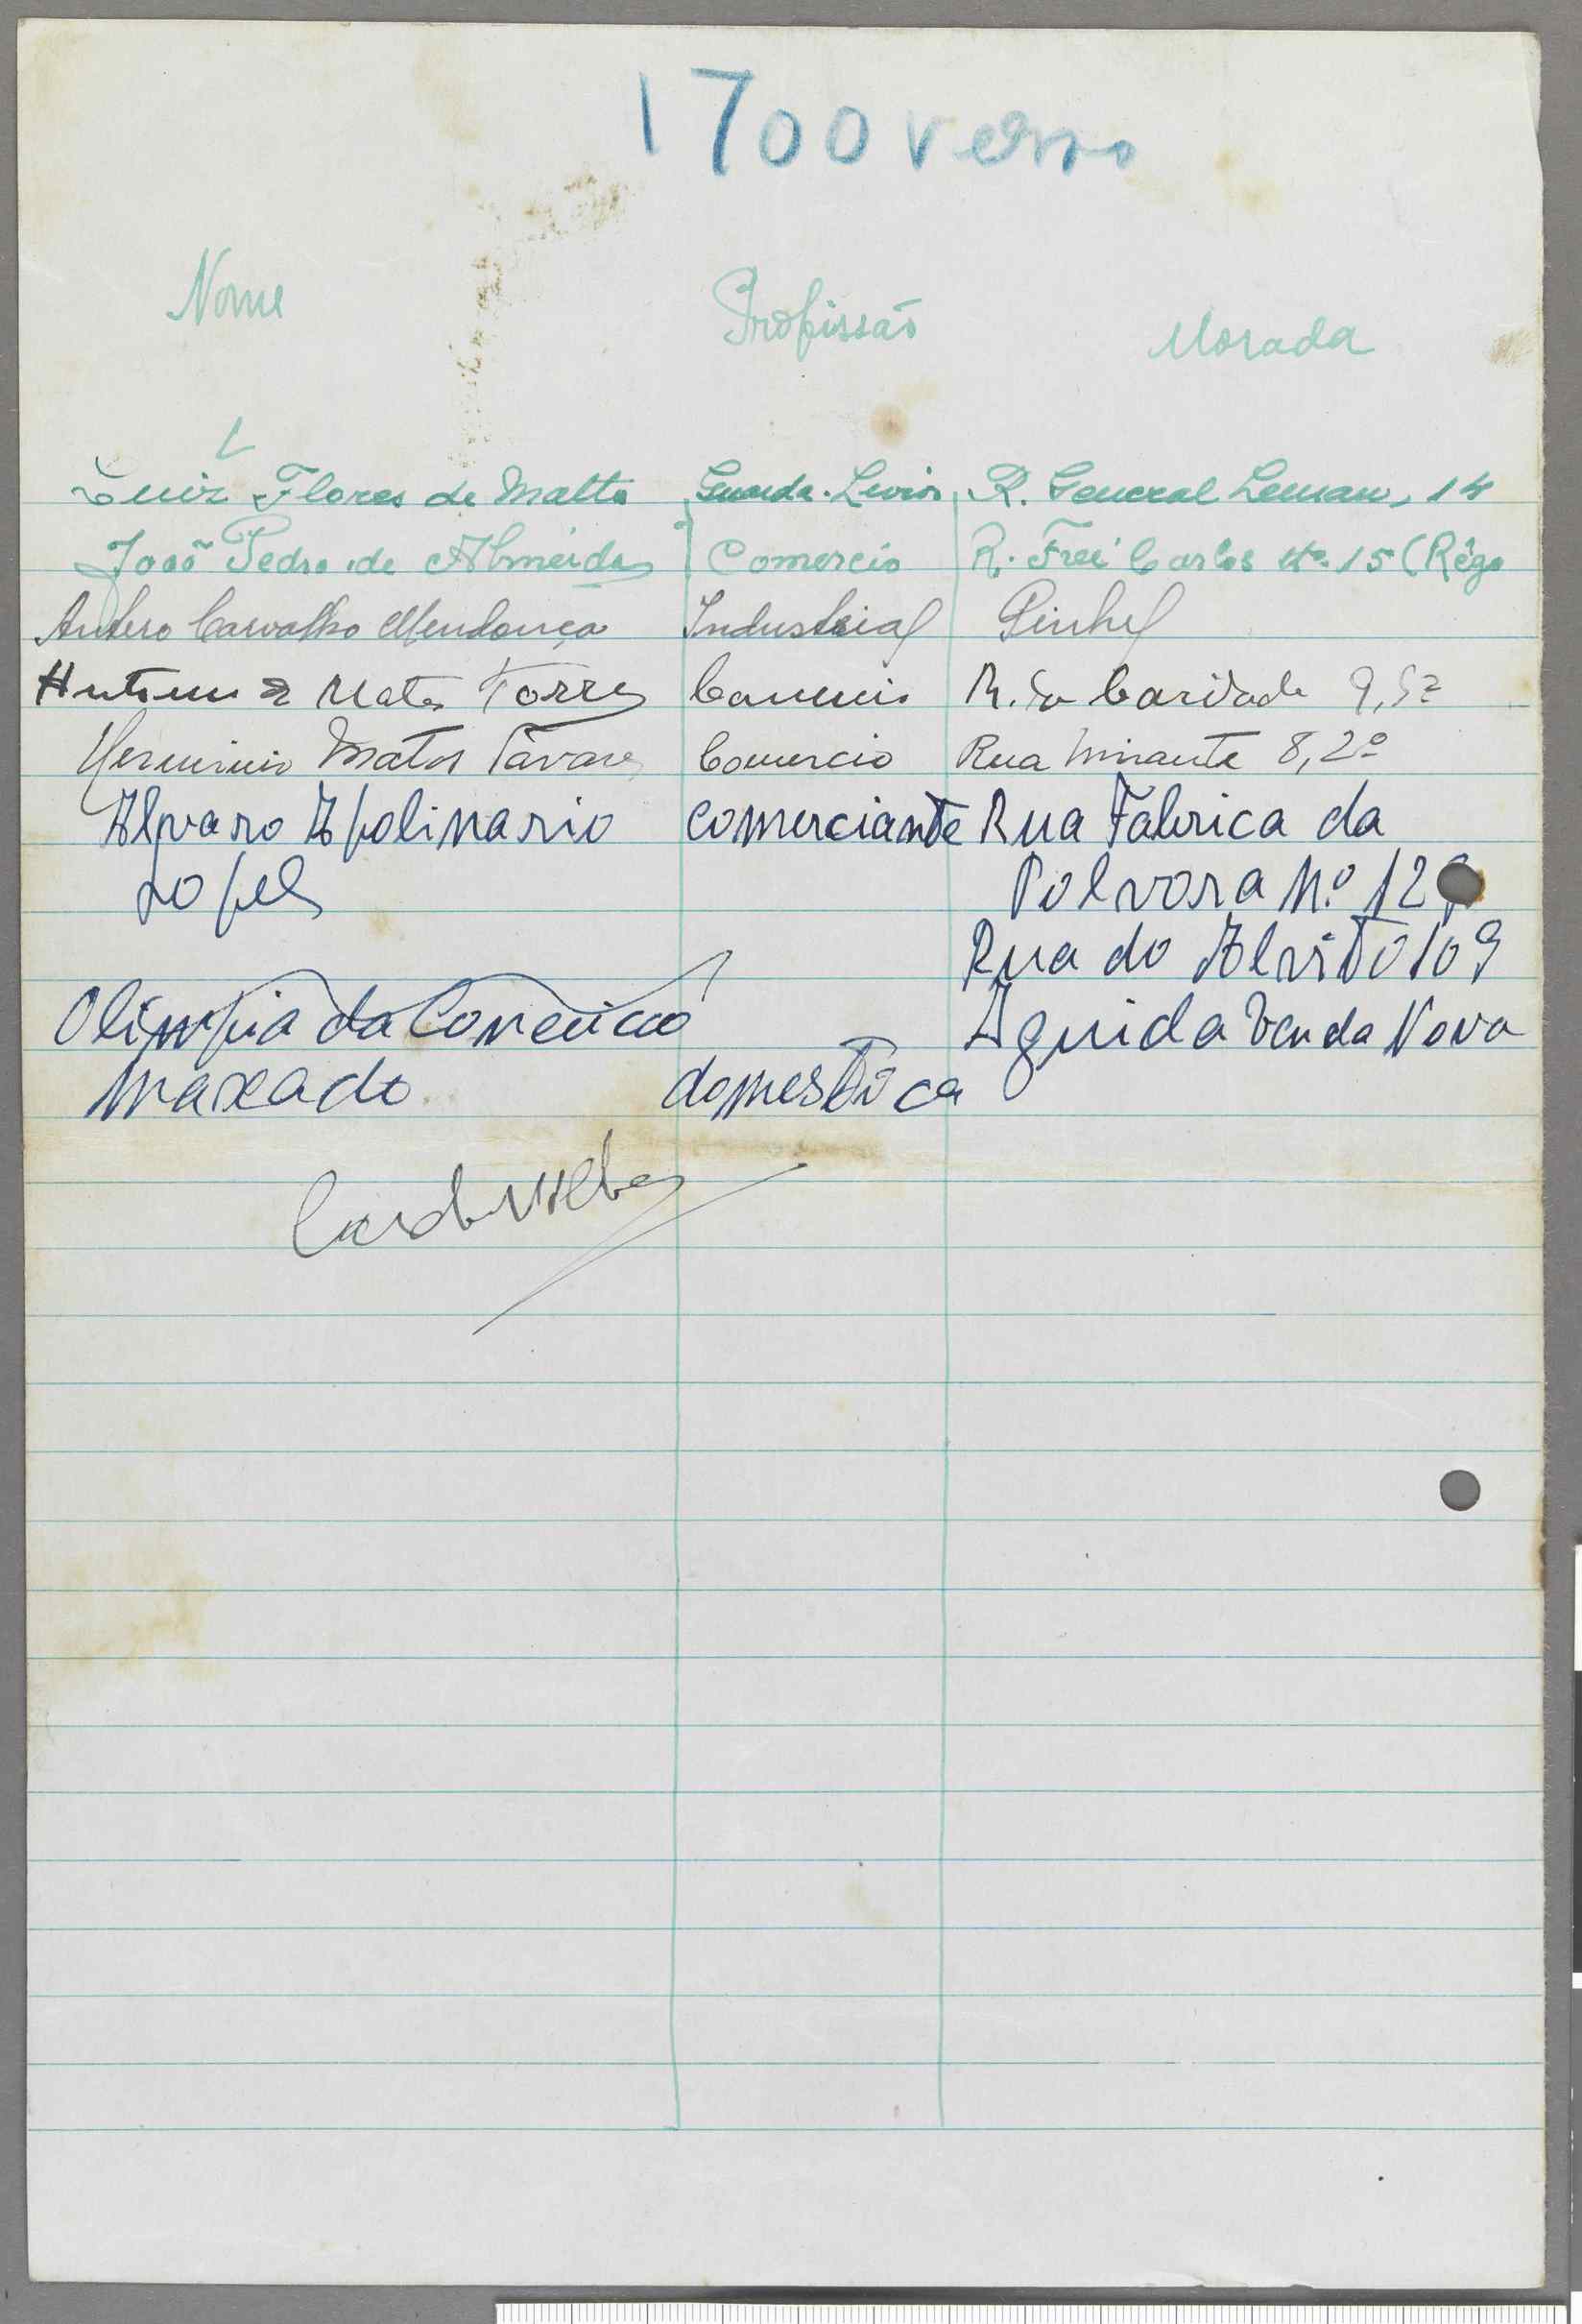 1700 verso
Nome Profissão Morada
Luiz Flores de Matta Guarda-Livros R. General Leman, 14
João Pedro de Almeida Comercio R. Frei Carlos Nº 15 (Rêgo
Antero Carvalho Mendonça Industrial Pinhel
Matos Torres Comercio R. da Caridade 9,
Herminio Matos Tavares Comercio Rua Mirante 8, 2º
Alvaro Apolinario comerciante Rua Fabrica da
Lopes Polvora N.º 12
Rua do Alvito 109
Olimpia da Conceicao Aguida Venda Nova
Maxado domestica